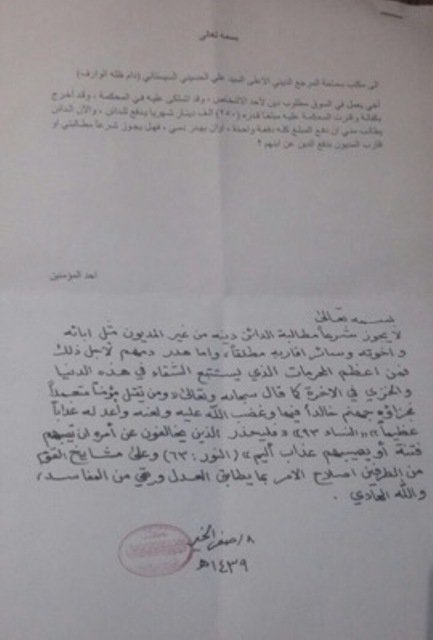 بسمه تعالى
الى مكتب سماحة المرجع الديني الاعلى السيد علي الحسيني السيستاني (دام ظله الوارف)
أخي يعمل في السوق مطلوب دين لأحد الاشخاص ، وقد اشتكى عليه في المحكمة ، وقد أخرج
بكفالة وقررت المحكمة عليه مبلغا قدره (٢٥٠) الف دينار شهريا يدفع للدائن ، والآن الدائن
يطالب مني ان ادفع المبلغ كله دفعة واحدة ، أو ان يهدر دمي ، فهل يجوز شرعاً مطالبتي او
اقارب المديون بدفع الدين عن ابنهم ؟
احد المؤمنين
بسمه تعالى
لا يجوز شرعاً مطالبة الدائن دينه من غير المديون مثل ابائه
و اخوته وسائر اقاربه مطلقاً، واما هدر دمهم لاجل ذلك
فمن اعظم المحرمات الذي يستتبع الشقاء في هذه الدنيا
والخزي في الآخرة كما قال سبحانه وتعالى «ومن يقتل مؤمناً متعمداً
فجزاؤه جهنم خالداً فيها وغضب الله عليه ولعنه وأعد له عذاباً
عظيماً» «النساء ٩٣» «فليحذر الذين يخالفون عن أمره ان تصيبهم
فتنة أو يصيبهم عذاب أليم» (النور : ٦٣) وعلى مشايخ القوم
من الطرفين اصلاح الامر بما يطابق العدل ويقي من المفاسد،
والله الهادي .
٨/صفر الخير
١٤٣٩هـ